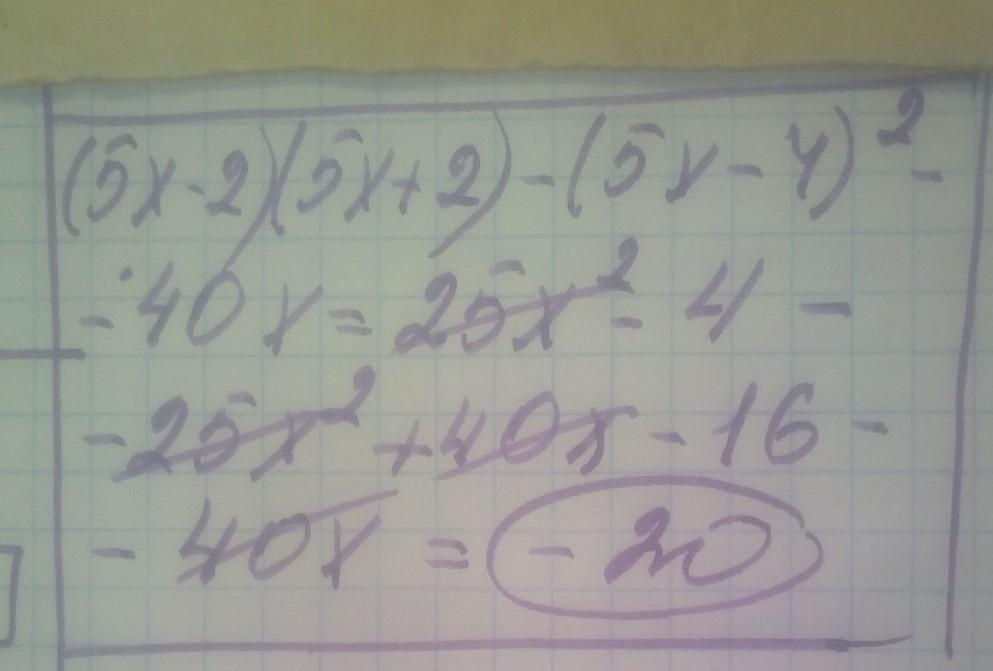 (5x-2)(5x+2)-(5x-4)² -
- 40x = 25x² - 4 -
- 25x² + 40x - 16 -
- 40x = -20